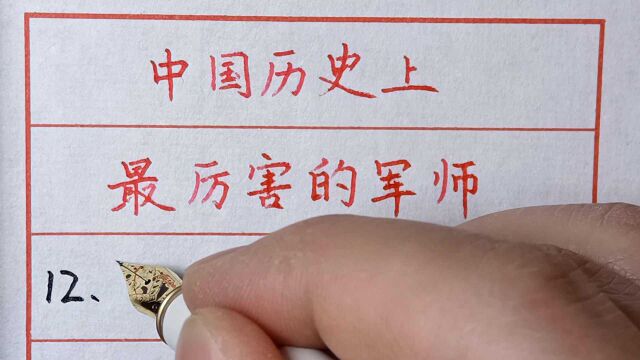 中国历史上
最厉害的军师
12、